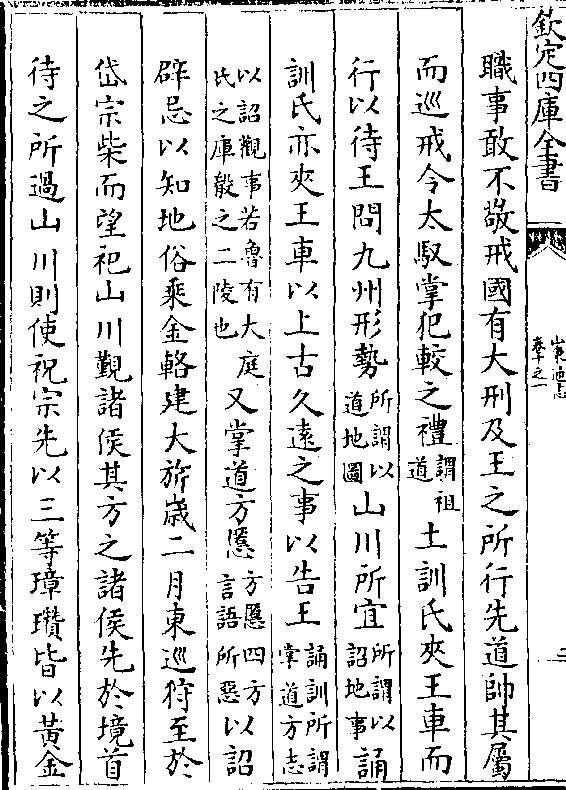 欽定四庫全書
卷之一
職事敢不敬戒國有大刑及王之所行先道帥其屬
而巡戒令太馭掌犯軷之禮謂祖道土訓氏夾王車而
行以待王問九州形勢所謂以道地圖山川所宜所謂以詔地事誦
訓氏亦夾王車以上古久遠之事以告王誦訓所謂掌道方志
以詔觀事若魯有大庭氏之庫殽之二陵也又掌道方慝方慝四方言語所惡以詔
辟忌以知地俗乘金輅建大旂歲二月東巡狩至於
岱宗柴而望祀山川覲諸侯其方之諸侯先於境首
待之所過山川則使祝宗先以三等璋瓚皆以黃金